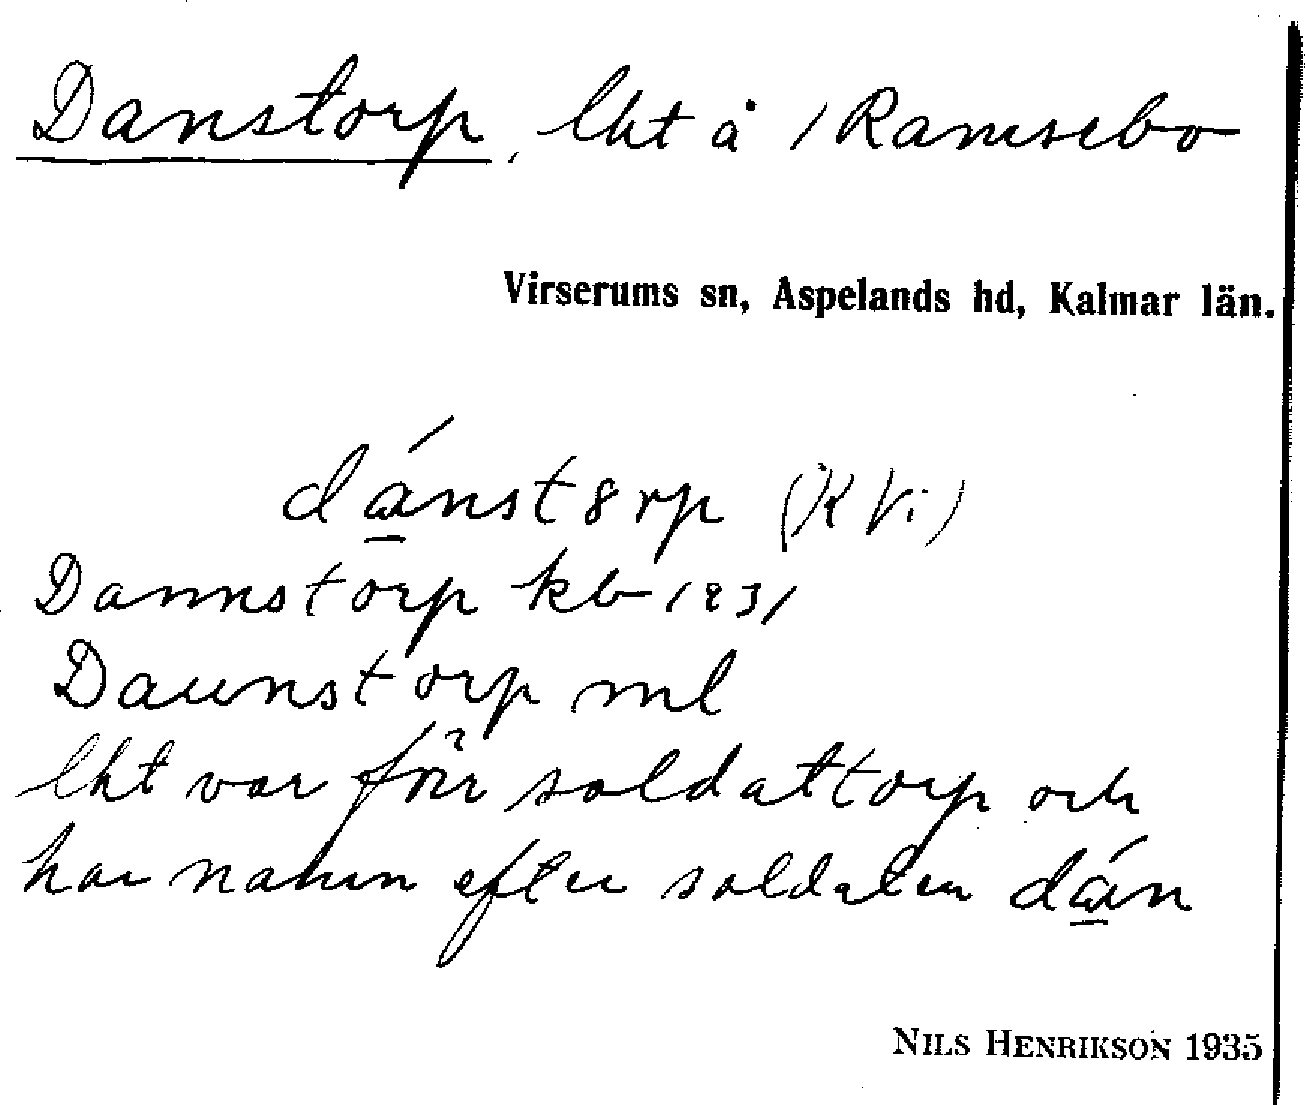 Danstorp, lht å 1 Ramsebo
Virserums sn, Aspelands hd, Kalmar län.
dánstorp (K Vi)
Dannstorp kb 1831
Daunstorp ml
lht var förr soldattorp och
har namn efter soldaten dán
NILS HENRIKSON 1935